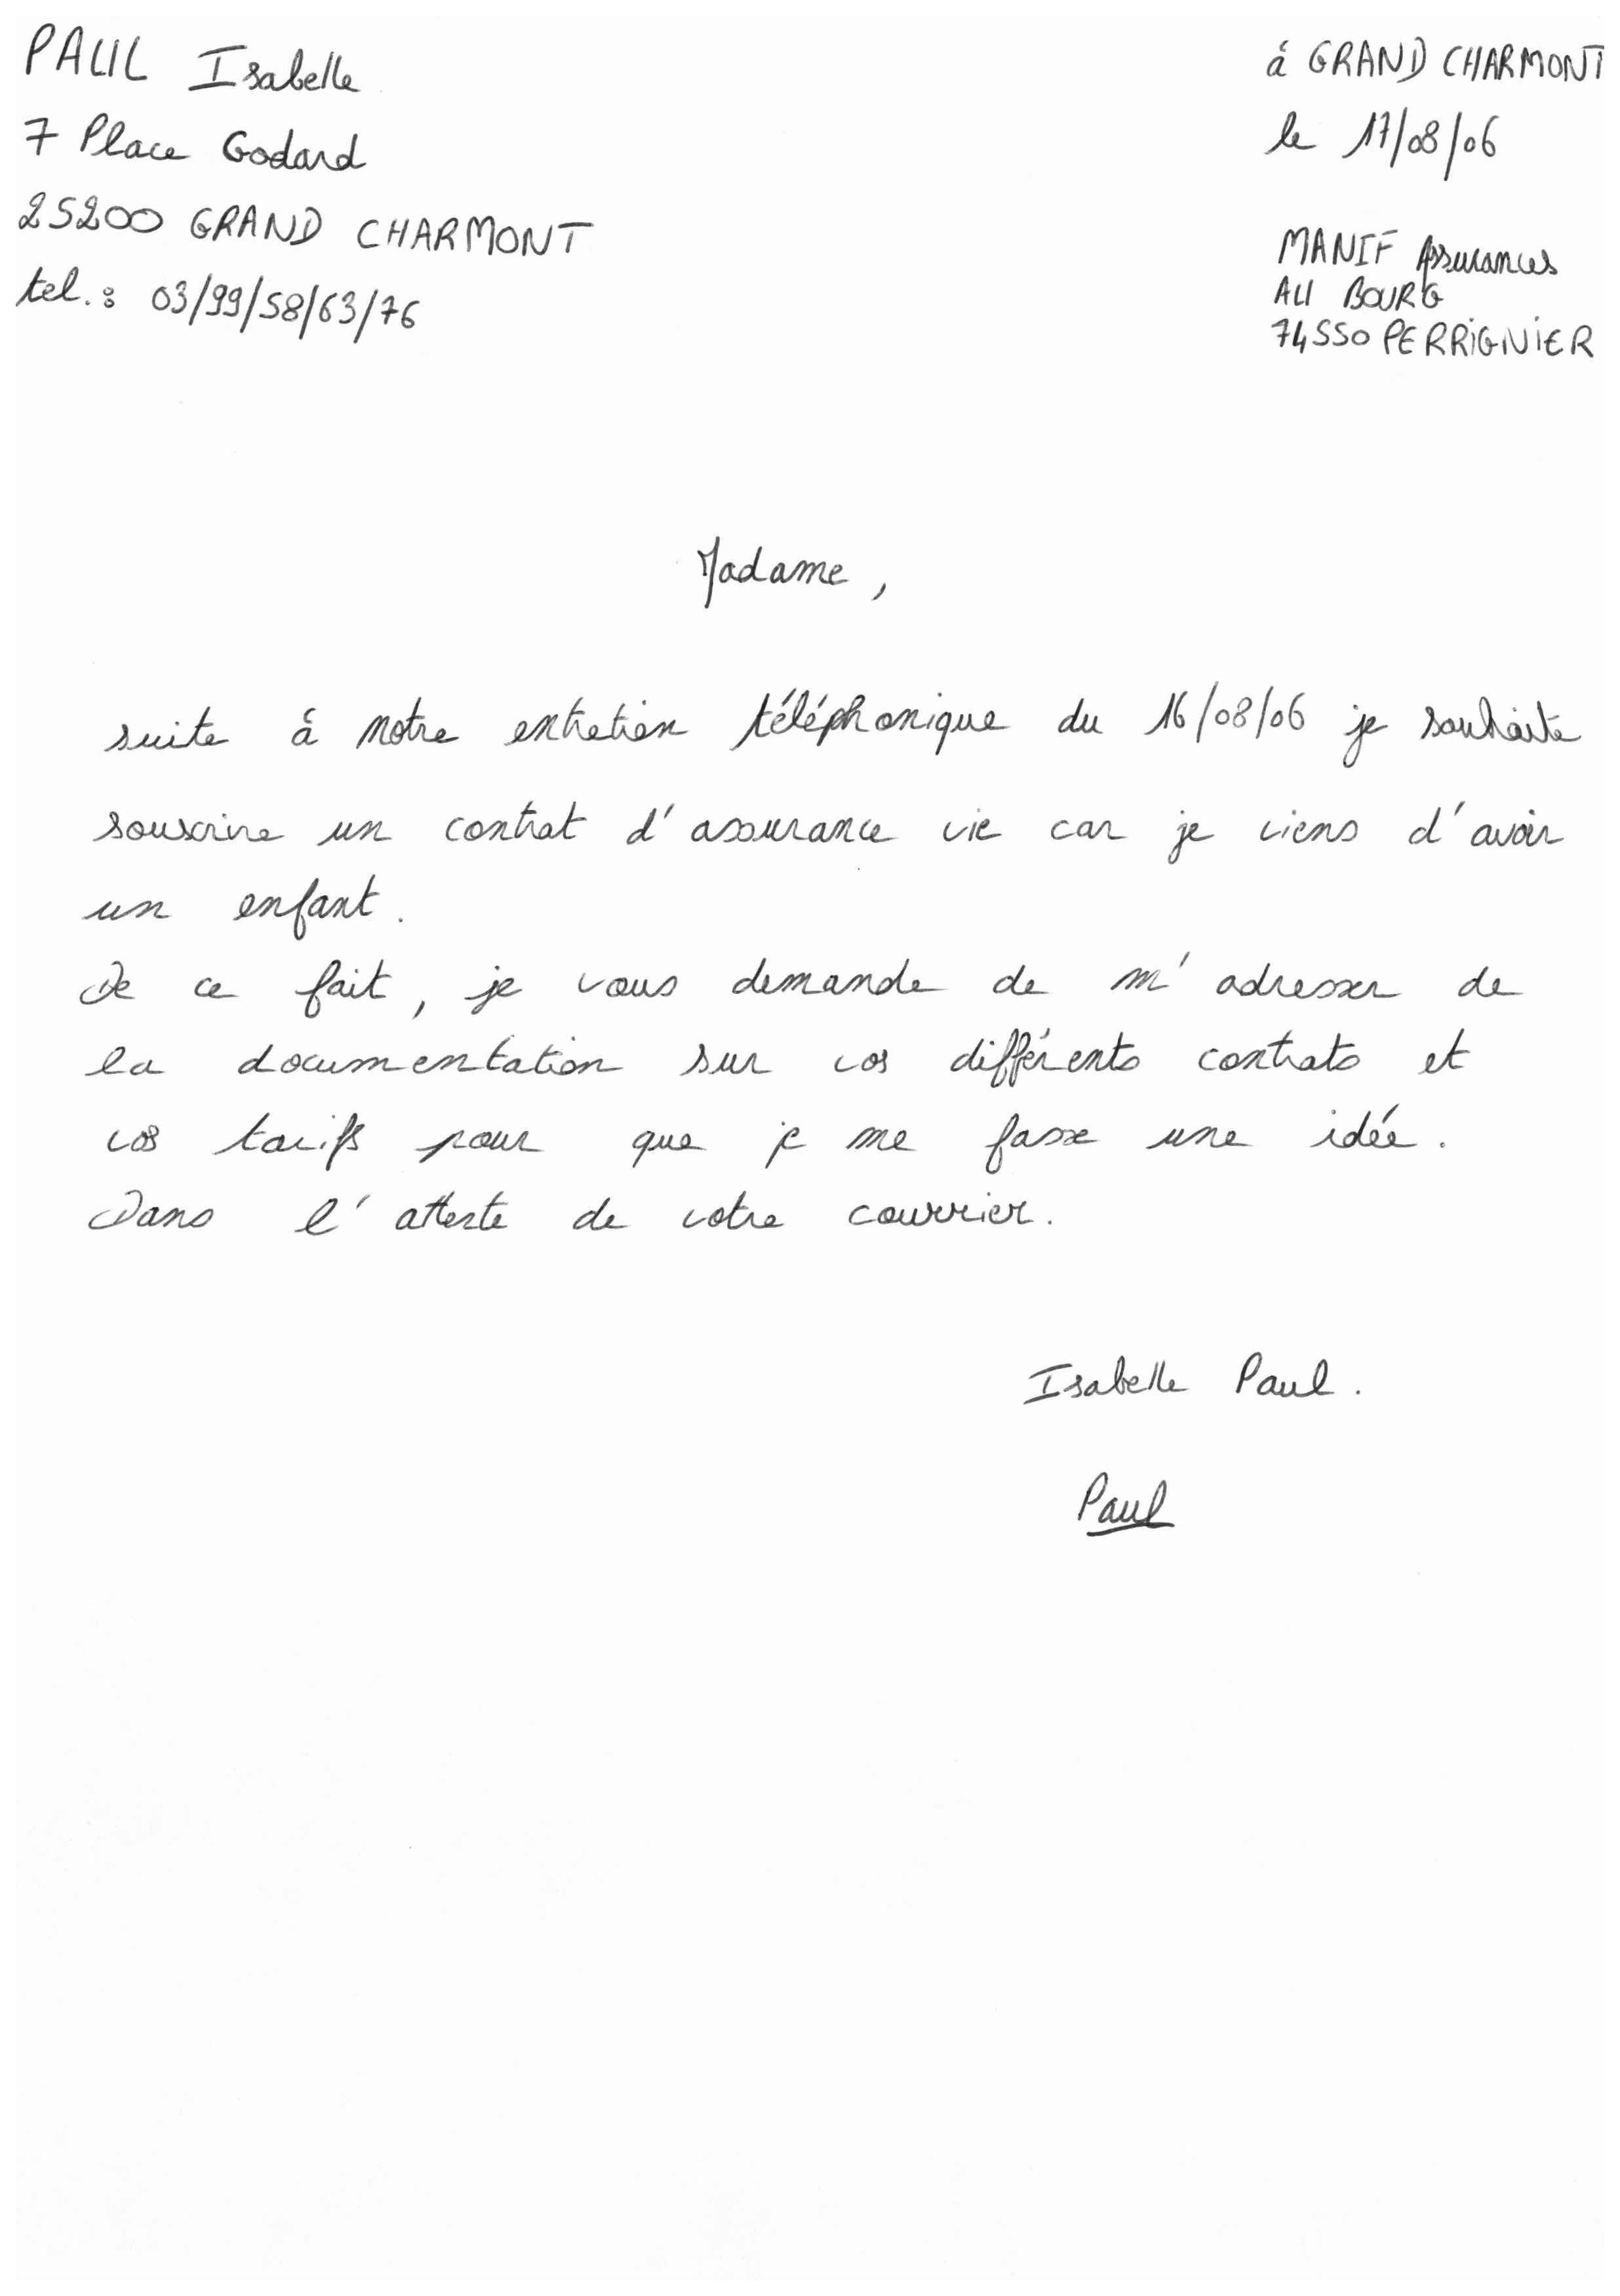 PAUL Isabelle
7 Place Godard
25200 GRAND CHARMONT
tel. : 03/99/58/63/76
à GRAND CHARMONT
le 17/08/06
MANIF Assurances
AU BOURG
74550 PERRIGNIER
Madame,
suite à notre entretien téléphonique du 16/08/06 je souhaite
souscrire un contrat d'assurance vie car je viens d'avoir
un enfant.
De ce fait, je vous demande de m'adresser de
la documentation sur vos différents contrats et
vos tarifs pour que je me fasse une idée.
Dans l'attente de votre courrier.
Isabelle Paul.
Paul